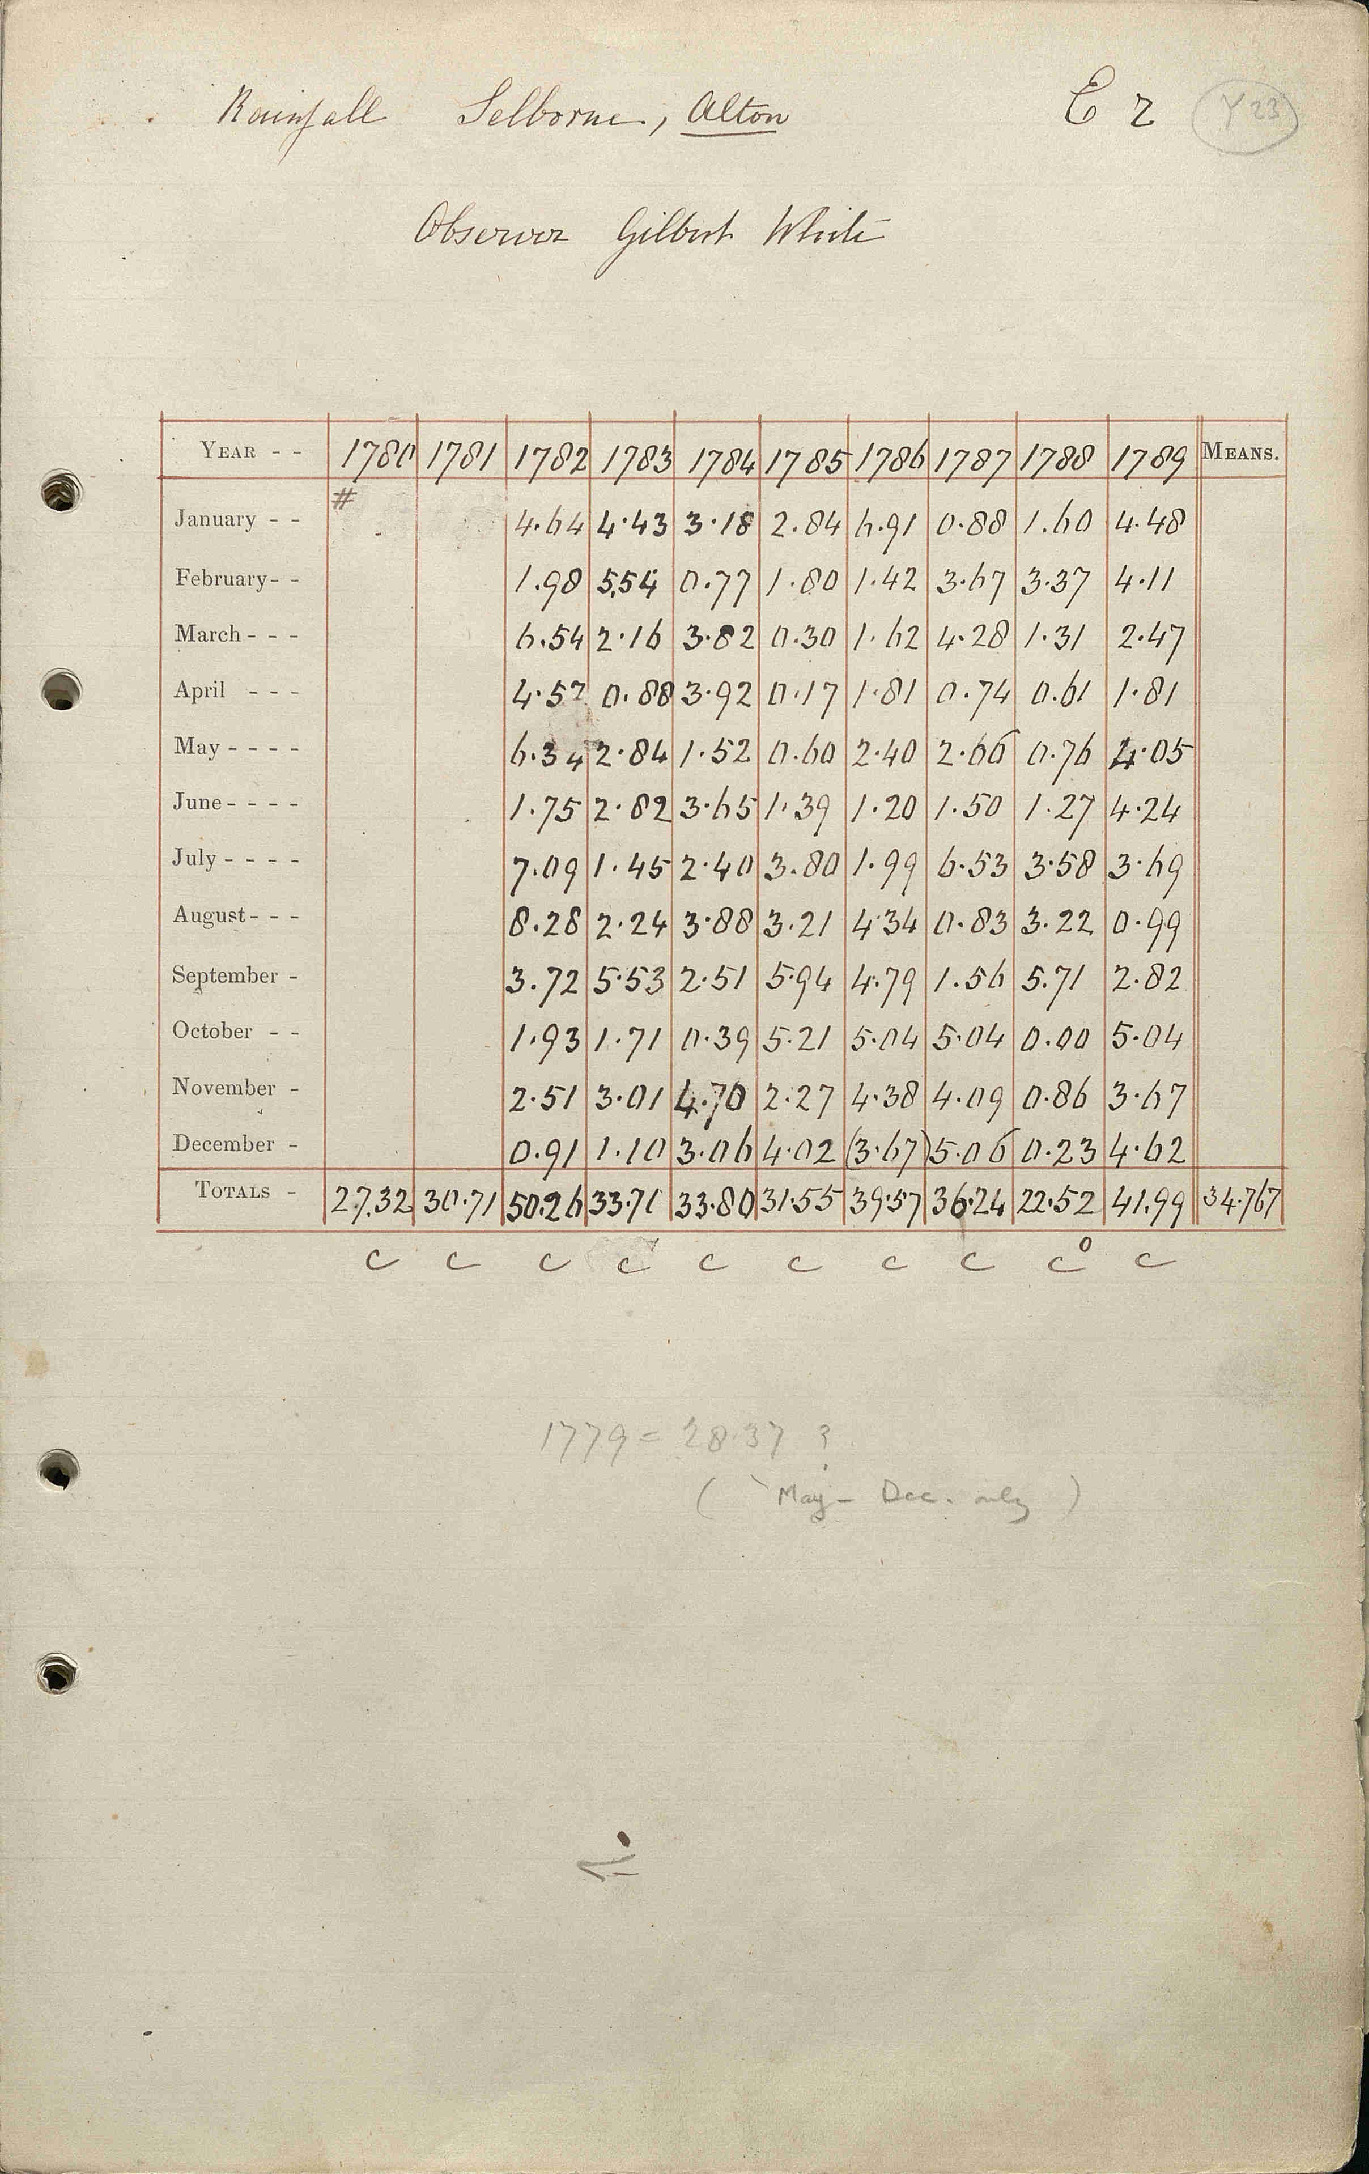 Rainfall Selborne, Alton E 2 Y 23
Observer Gilbert White
YEAR - - 1780 1781 1782 1783 1784 1785 1786 1787 1788 1789 MEANS.
#
January - - 4.64 4.43 3.18 2.84 6.91 0.88 1.60 4.48
February - - 1.98 5.54 0.77 1.80 1.42 3.67 3.37 4.11
March - - - 6.54 2.16 3.82 0.30 1.62 4.28 1.31 2.47
April - - - 4.57 0.88 3.92 0.17 1.81 0.74 0.61 1.81
May - - - - 6.34 2.84 1.52 0.60 2.40 2.66 0.76 4.05
June - - - - 1.75 2.82 3.65 1.39 1.20 1.50 1.27 4.24
July - - - - 7.09 1.45 2.40 3.80 1.99 6.53 3.58 3.69
August - - - 8.28 2.24 3.88 3.21 4.34 0.83 3.22 0.99
September - 3.72 5.53 2.51 5.94 4.79 1.56 5.71 2.82
October - - 1.93 1.71 0.39 5.21 5.04 5.04 0.00 5.04
November - 2.51 3.01 4.70 2.27 4.38 4.09 0.86 3.67
December - 0.91 1.10 3.06 4.02 (3.67) 5.06 0.23 4.62
TOTALS - 27.32 30.71 50.26 33.71 33.80 31.55 39.57 36.24 22.52 41.99 34.767
c c c c c c c c c° c
1779 = 28.37 ?
(May - Dec. only)